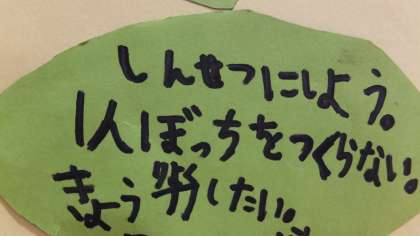 しんせつにしよう。
1人ぼっちをつくらない。
きょう力したい。